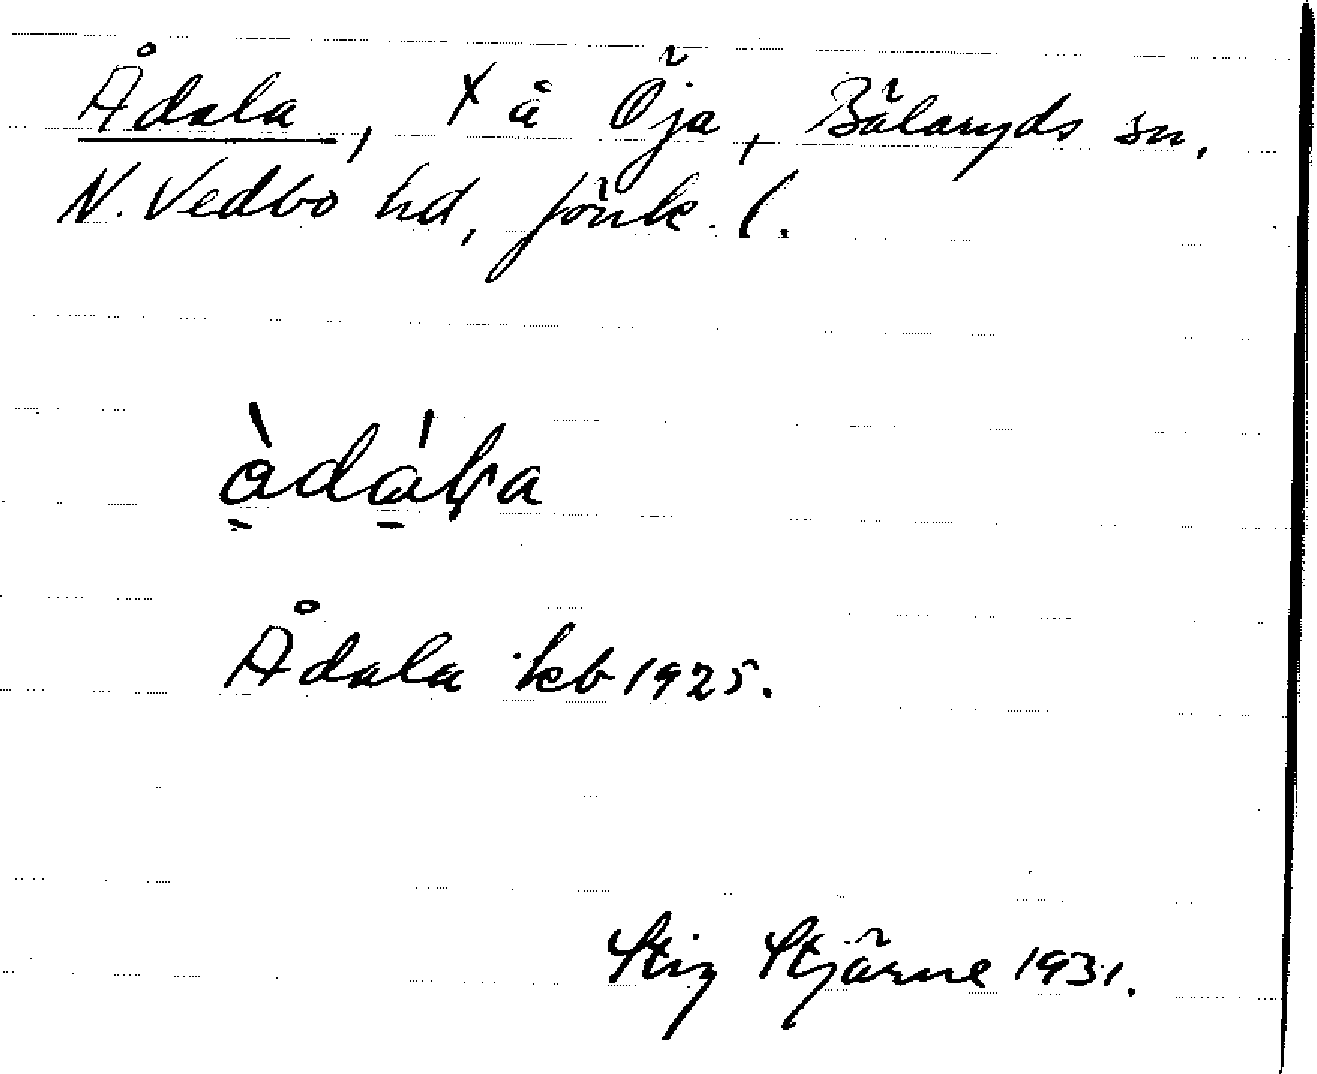 Ådala, x å Öja, Bälaryds sn,
N. Vedbo hd, Jönk. l.
àdáḷa
Ådala kb 1925.
Stig Stjärne 1931.